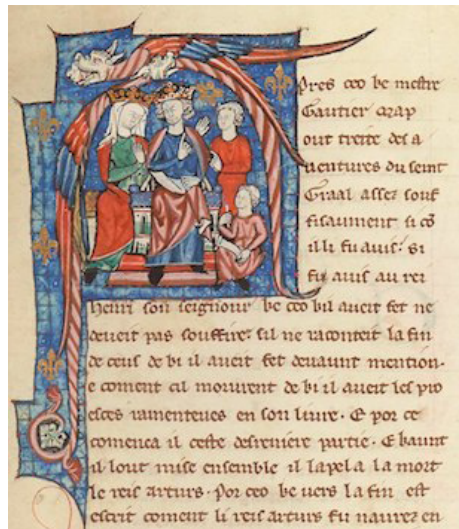 Apres ceo ke mestre
Gautier map
out treite des a
uentures du seint
Graal assez souf
fisaument si cō
il li fu auis. Si
fu auis au rei
henri son seignour ke ceo kil aueit fet ne
deueit pas souffire. sil ne raconteit la fin
de ceus de ki il aueit fet deuaunt mention.
e coment cil morurent de ki il aueit les pro
esces ramenteues en son liure. E por ce
comenca il ceste desreniere partie. E kaunt
il lout mise ensemble il lapel a la mort
le reis arturs. Por ceo ke uers la fin est
escrit coment li reis arturs fu naurez en